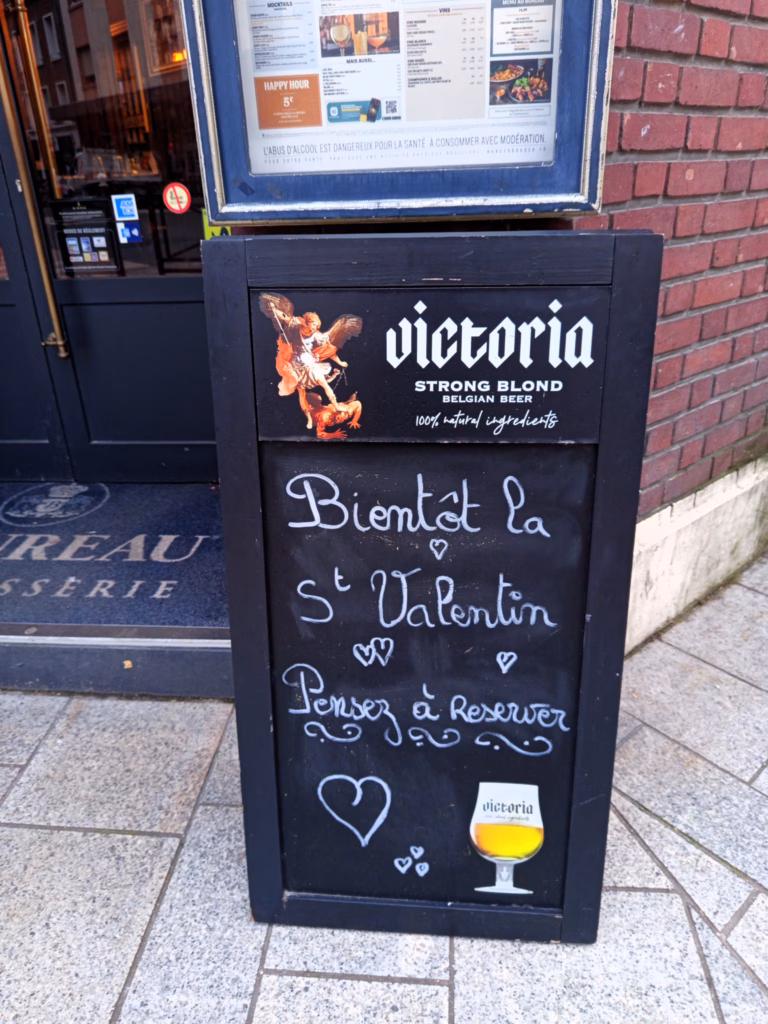 MOCKTAILS
MAIS AUSSI...
VINS
MENU AU BUREAU
HAPPY HOUR
5€
L'ABUS D'ALCOOL EST DANGEREUX POUR LA SANTÉ. À CONSOMMER AVEC MODÉRATION.
victoria
STRONG BLOND
BELGIAN BEER
100% natural ingredients
Bientôt la
St Valentin
Pensez à Reserver
victoria
UREAU
SSERIE